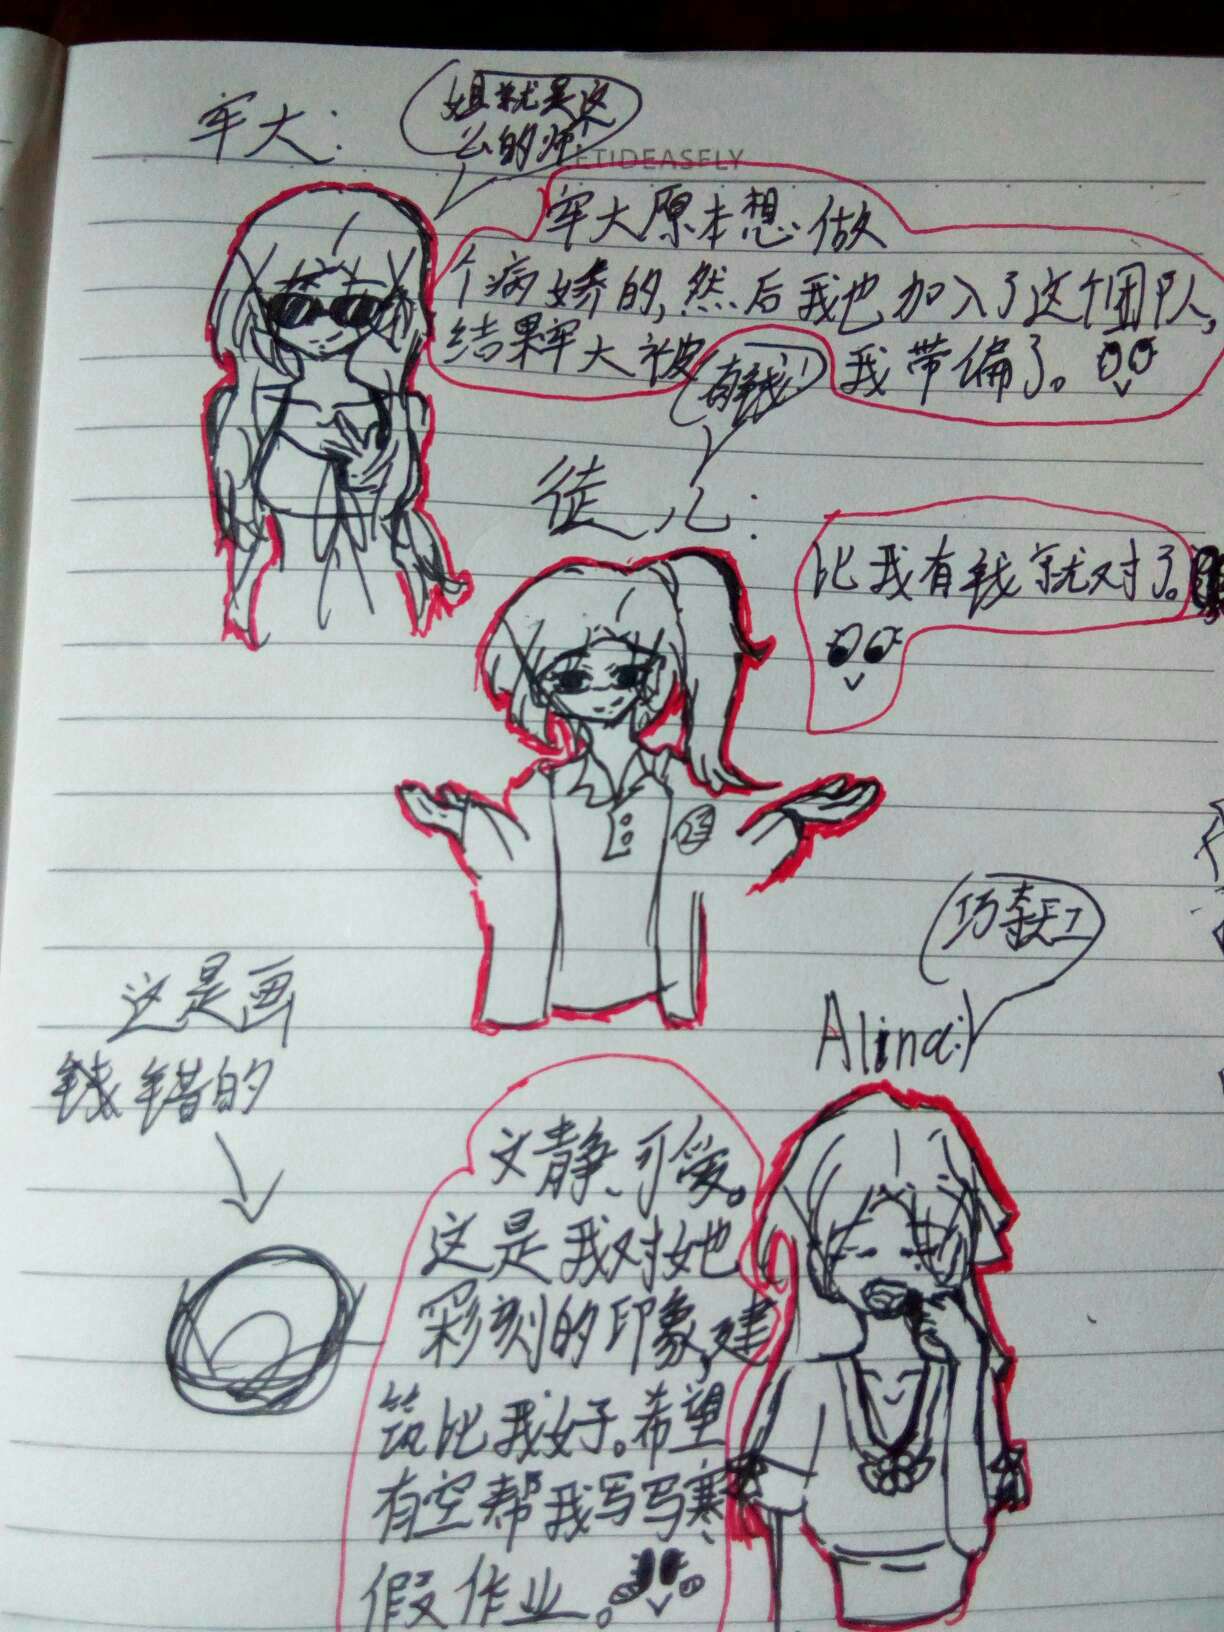 牢大:
姐就是这
么的帅.
ETIDEASELY
牢大原本想做
个病娇的,然后我也加入了这个团队,
结果牢大被我带偏了。
有钱!
徒儿:
比我有钱就对了。
巧夺天工
Alina:
这是画
钱错的
文静、可爱。
这是我对她
彩刻的印象,建
筑比我好。希望
有空帮我写写寒
假作业。